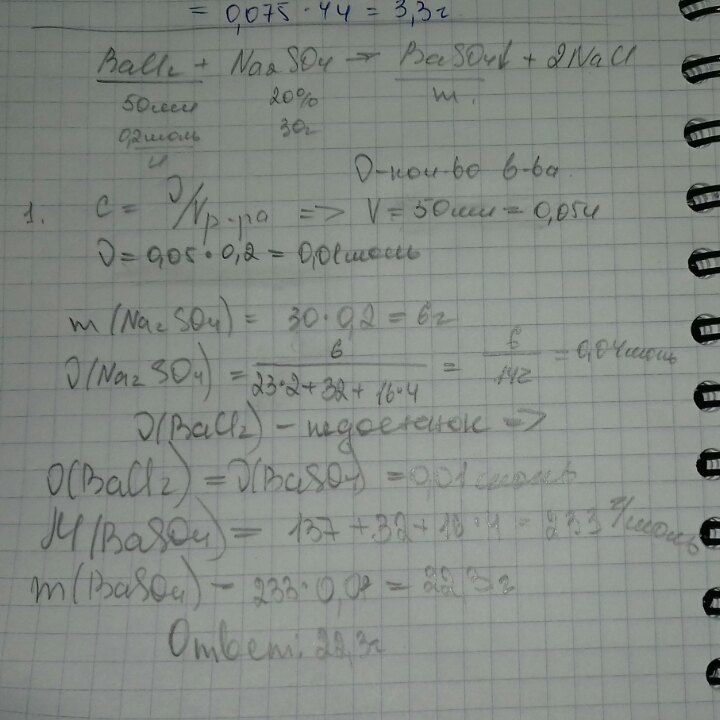 = 0,075 · 44 = 3,3г
BaCl₂ + Na₂SO₄ → BaSO₄↓ + 2NaCl
50мл 20% m.
0,2моль 30г
л
ν-кол-во в-ва
1. C = ν/Vр-ра => V = 50мл = 0,05л
ν = 0,05 · 0,2 = 0,01моль
m(Na₂SO₄) = 30 · 0,2 = 6г
ν(Na₂SO₄) = 6/23·2+32+16·4 = 6/142 = 0,04моль
ν(BaCl₂) - недостаток =>
ν(BaCl₂) = ν(BaSO₄) = 0,01 моль
M(BaSO₄) = 137 + 32 + 16·4 = 233 г/моль
m(BaSO₄) = 233 · 0,01 = 22,3г
Ответ: 22,3г